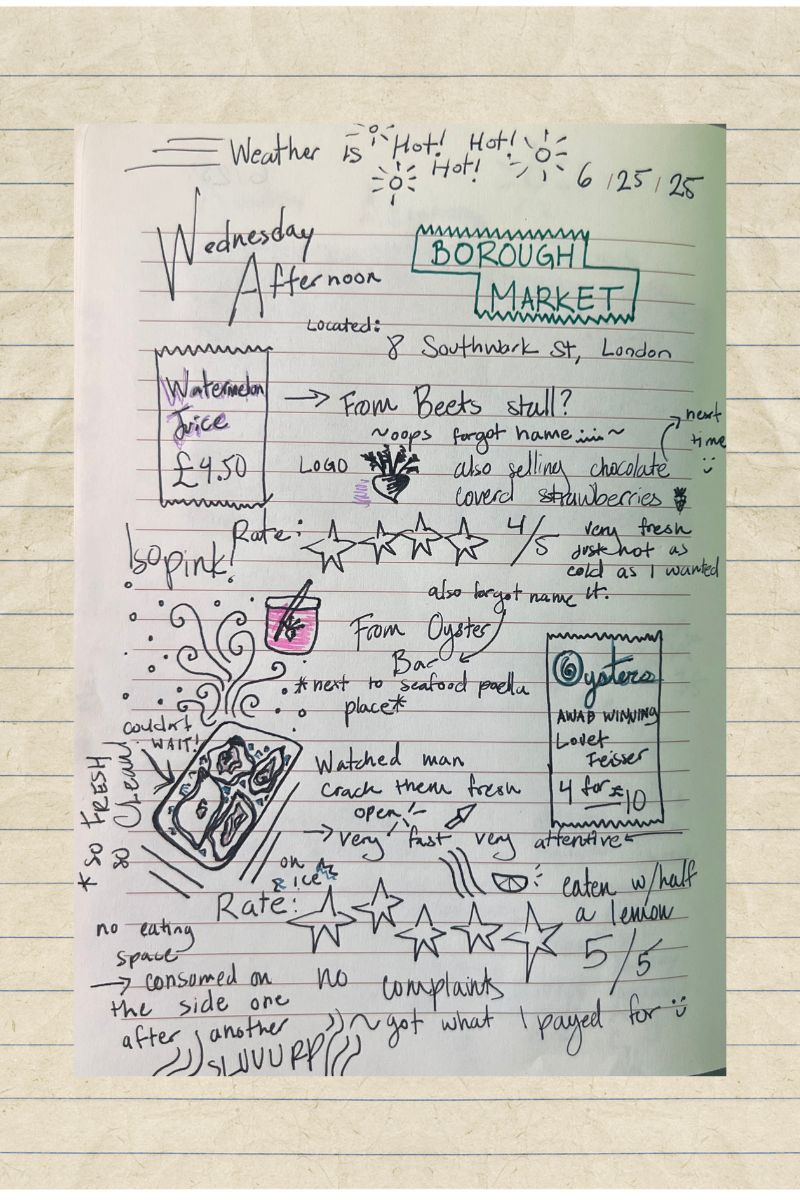 Weather is Hot! Hot! Hot!
6/25/25
Wednesday
Afternoon
BOROUGH
MARKET
Located:
8 Southwark St, London
Watermelon
Juice
£4.50
→ From Beets stall?
~oops forgot name ~
LOGO
also selling chocolate
coverd strawberries
next
time
Rate: 4/5
very fresh
just not as
cold as I wanted
it.
so pink!
also forgot name
From Oyster
Bar
*next to seafood paella
place*
Oysters
AWAD WINNING
Lovet
Feisser
4 for £10
couldn't
WAIT!
* SO FRESH
SO CLEAN
Watched man
crack them fresh
open
→ very fast very attentive
on
ice
Rate:
eaten w/half
a lemon
5/5
no eating
space
→ consumed on
the side one
after another
no complaints
~ got what I payed for
SLUUURP